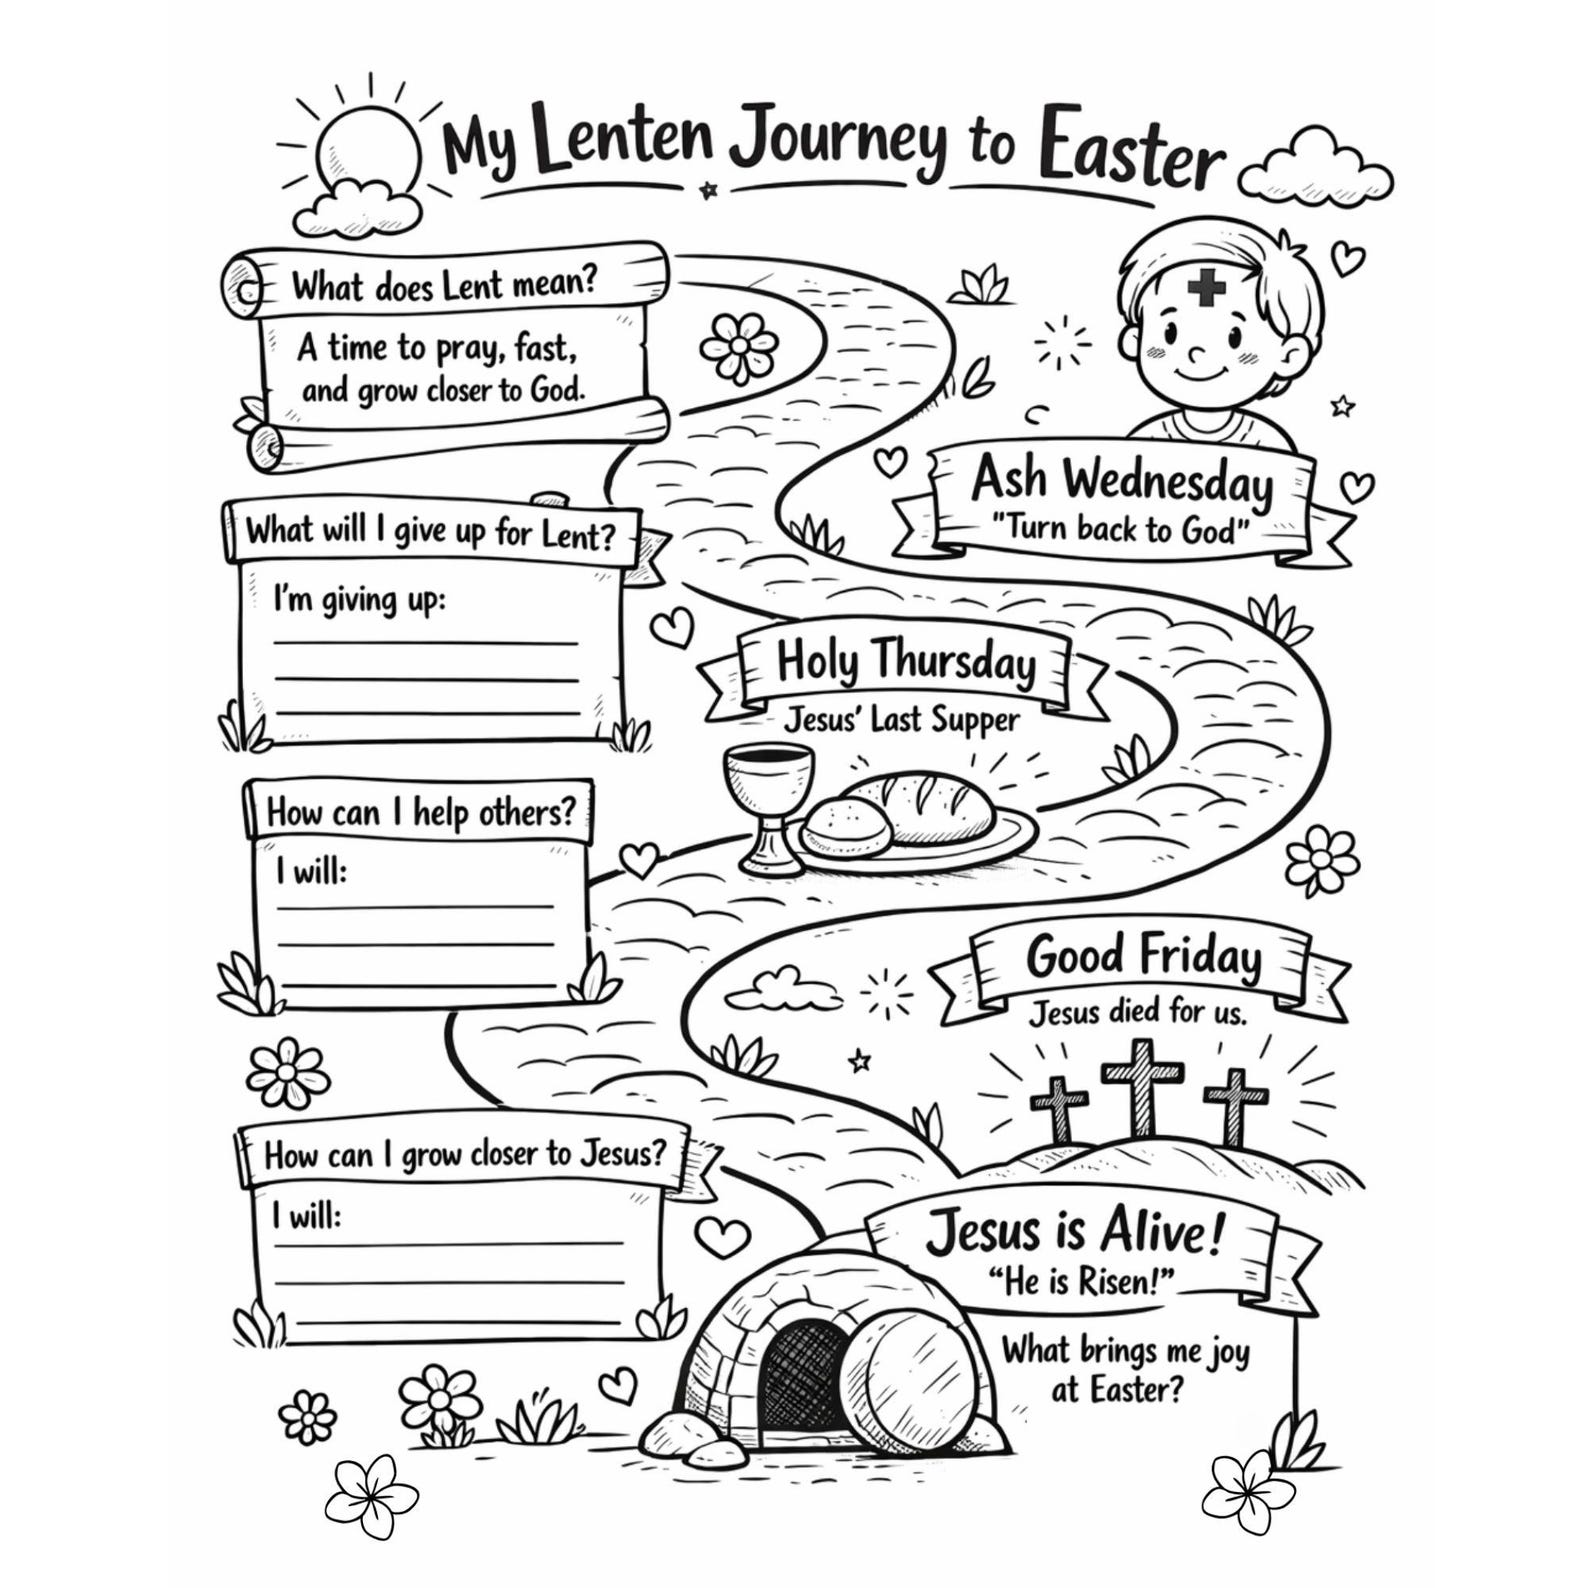 My Lenten Journey to Easter
What does Lent mean?
A time to pray, fast,
and grow closer to God.
Ash Wednesday
"Turn back to God"
What will I give up for Lent?
I'm giving up:
Holy Thursday
Jesus' Last Supper
How can I help others?
I will:
Good Friday
Jesus died for us.
How can I grow closer to Jesus?
I will:
Jesus is Alive!
“He is Risen!”
What brings me joy
at Easter?